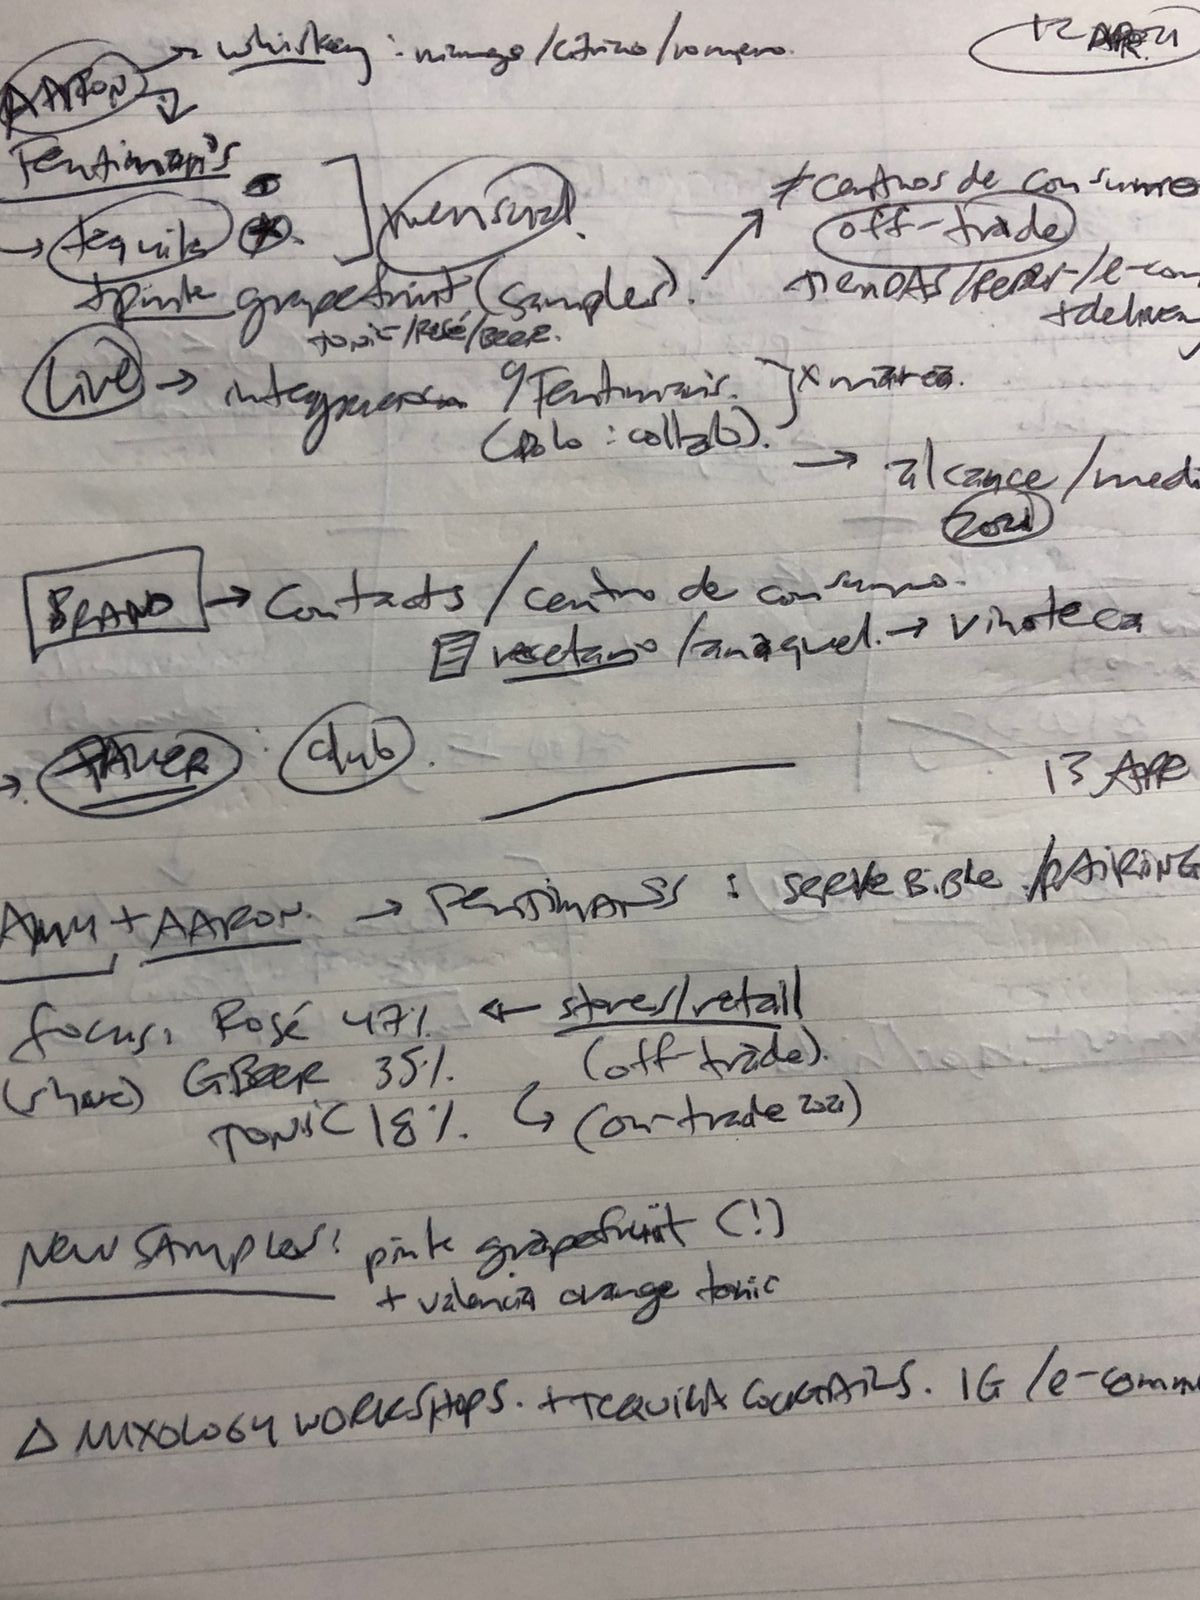 AARON → whiskey: mango/cítrico/romero. 12 APR. 21
Fentiman's
→ tequila mensual
≠ centros de consumo
off-trade
+ pink grapefruit (samples).
tiendas / /e-com
+ deliver
tonic/Rosé/BEER.
Live → Fentiman's. x marca.
( : collab).
→ alcance/medi
2021
BRAND → Contacts/centro de consumo.
recetario/anaquel. → Vinoteca
→ : club.
13 APR
Amy + AARON. → FENTIMANS'S: SERVE BiBle /PAiRiNG
focus: Rosé 47% ← stores/retail
(share) GBEER 35% (off-trade).
TONiC 18%. (on-trade 2021)
NEW SAMPLES: pink grapefruit (!)
+ valencia orange tonic
Δ MIXOLOGY WORKSHOPS. + TEQUILA COCKTAILS. IG /e-comm